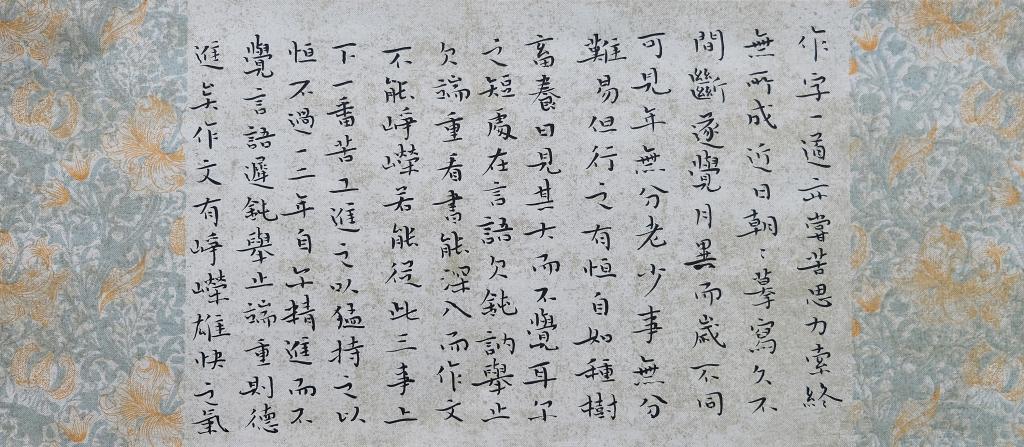 作字一道亦嘗苦思力索終
無所成近日朝〻摹寫久不
間斷遂覺月異而歲不同
可見年無分老少事無分
難易但行之有恒自如種樹
畜養日見其大而不覺耳尔
之短處在言語欠鈍訥舉止
欠端重看書能深入而作文
不能崢嶸若能從此三事上
下一番苦工進之以猛持之以
恒不過一二年自尔精進而不
覺言語遲鈍舉止端重則德
進矣作文有崢嶸雄快之氣